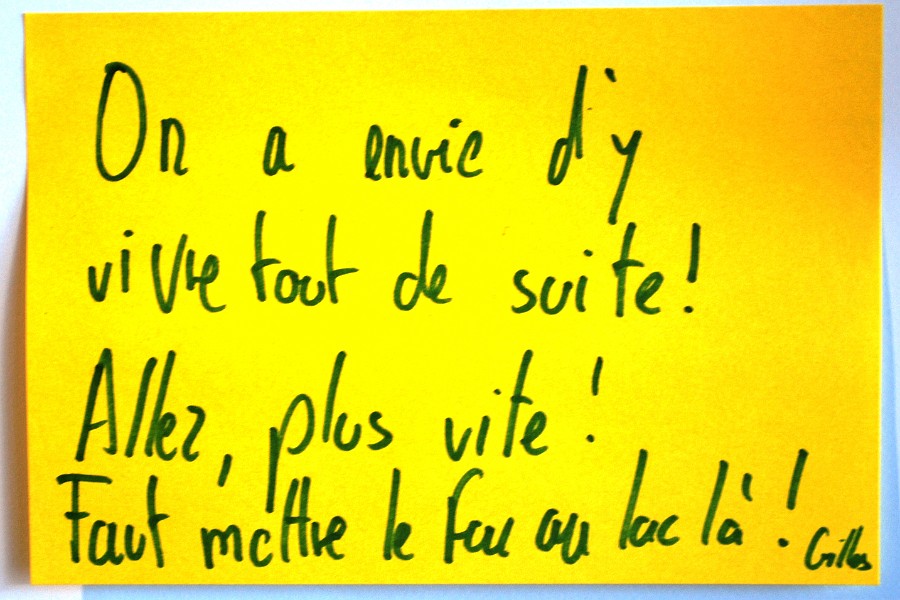 On a envie d'y
vivre tout de suite!
Allez, plus vite!
Faut mettre le feu au lac là!
Gilles